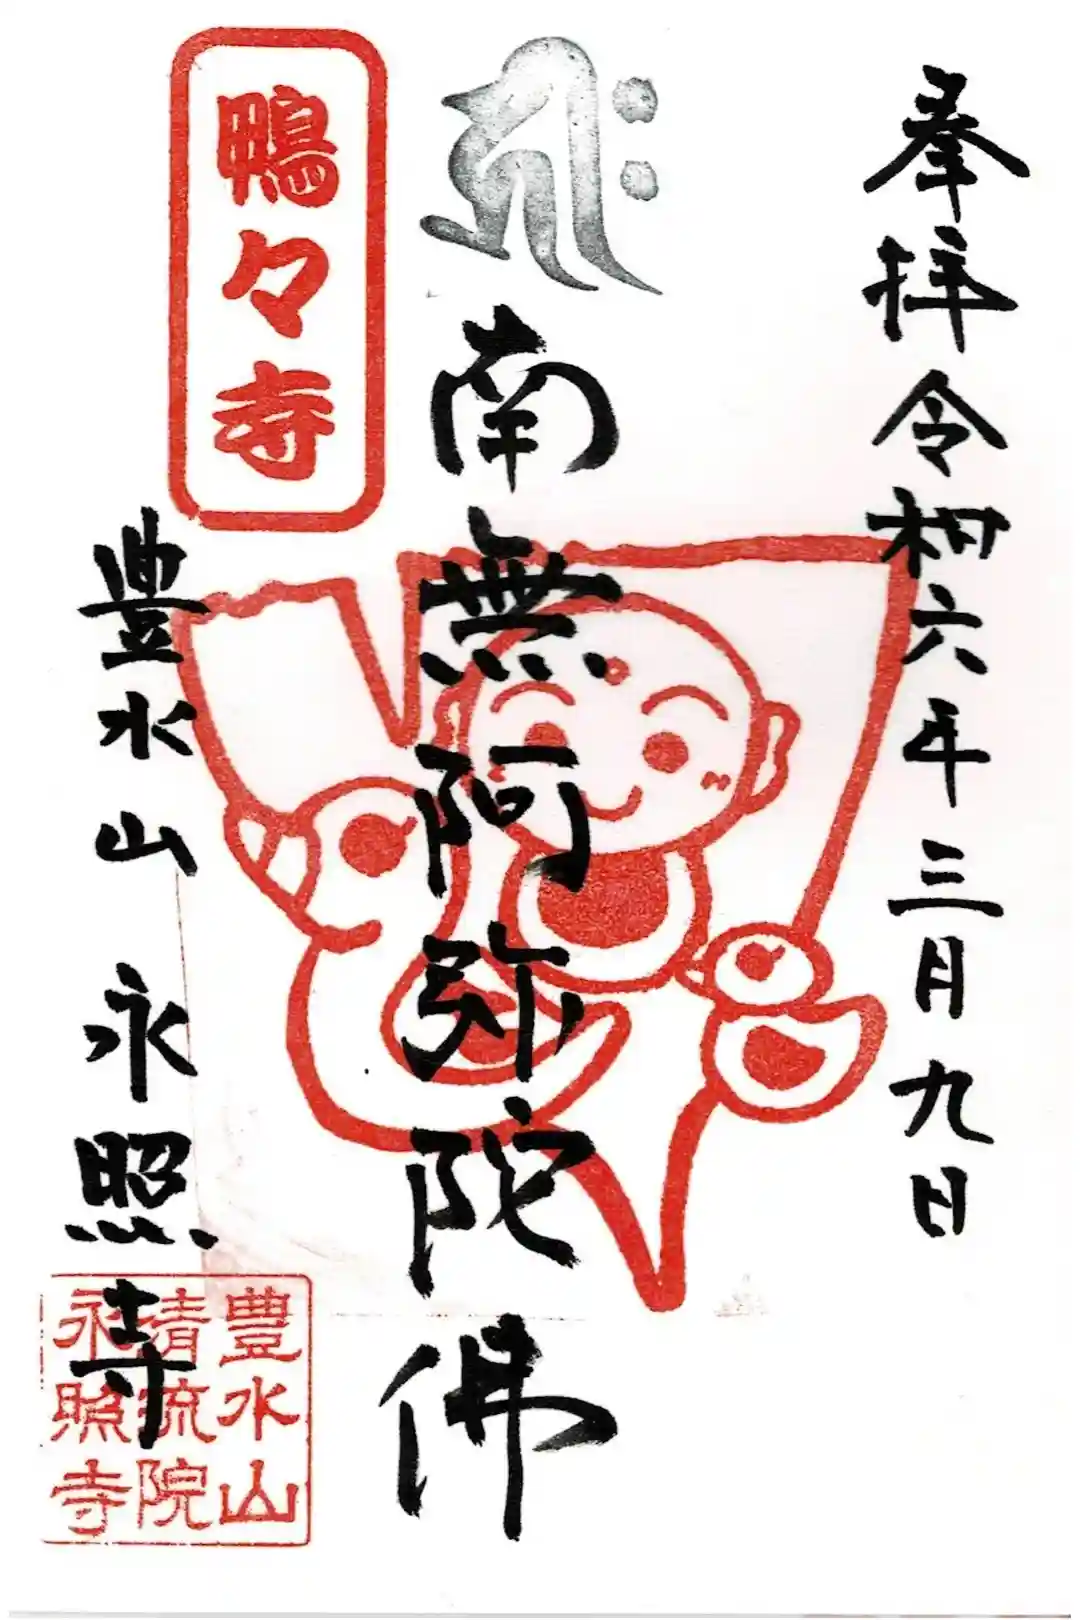 奉拝 令和六年三月九日
南無阿弥陀佛
鴨々寺
豊水山 永照寺
豊水山
清流院
永照寺